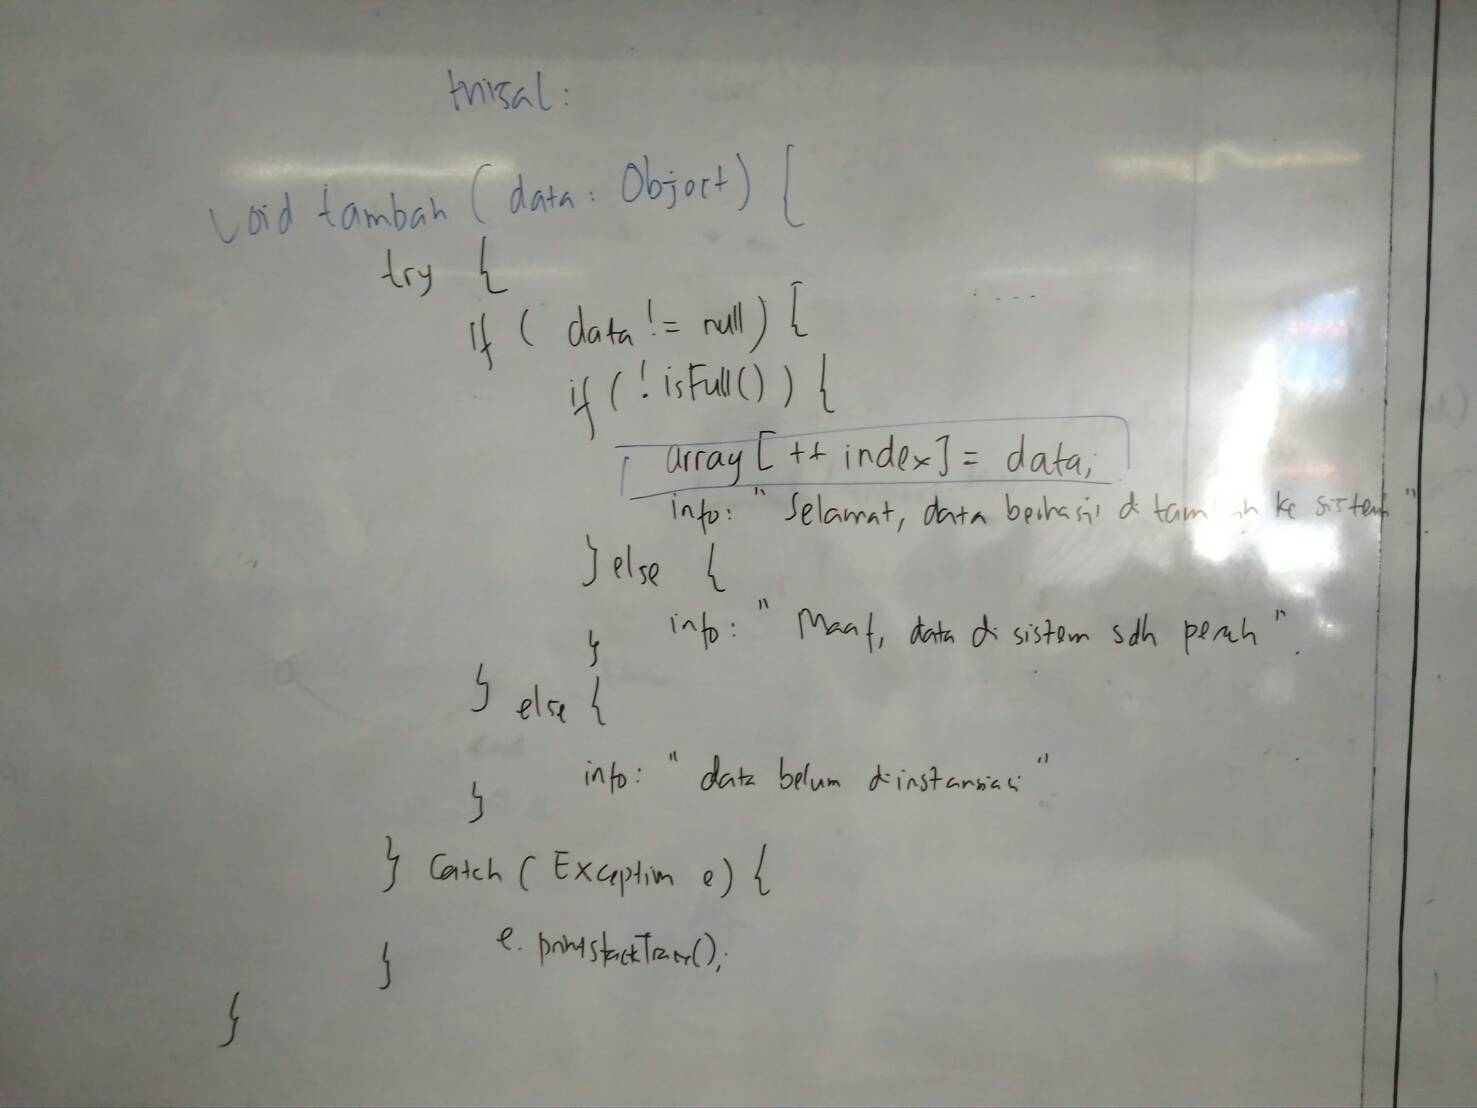 misal:
void tambah ( data : Object) {
try {
if ( data != null) {
....
if ( ! isFull() ) {
array [ ++ index] = data;
info: " Selamat, data berhasil di ke sistem "
} else {
info: " Maaf, data di sistem sdh penuh ".
}
} else {
info: " data belum diinstansiasi "
}
} Catch ( Exception e) {
e. printStackTrace();
}
}